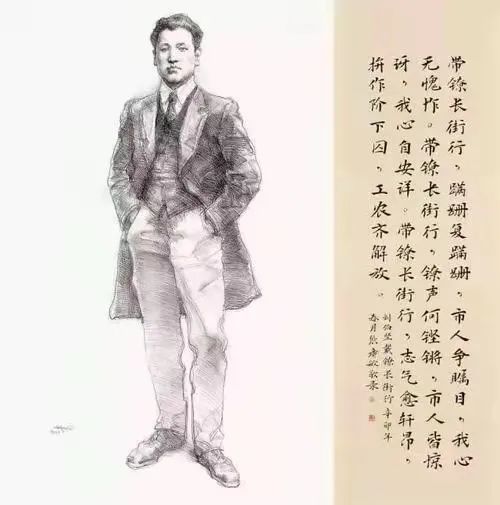 带镣长街行，蹒跚复蹒跚，市人争瞩目，我心
无愧怍。带镣长街行，镣声何铿锵，市人皆惊
讶，我心自安详。带镣长街行，志气愈轩昂，
拚作阶下囚，工农齐解放。
刘伯坚戴镣长街行 辛卯年
春月